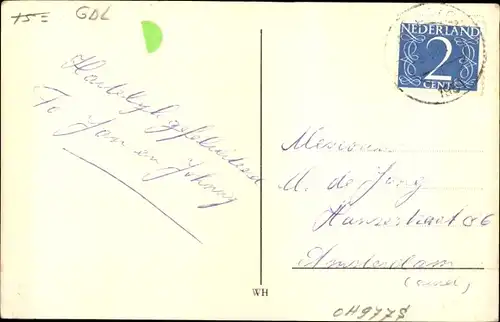 15 =
GDL
Hartelijk gefeliciteerd
To Jan en Johnny
NEDERLAND
2
CENT
Mevrouw
M. de Jong
6
Amsterdam
WH
OH9778